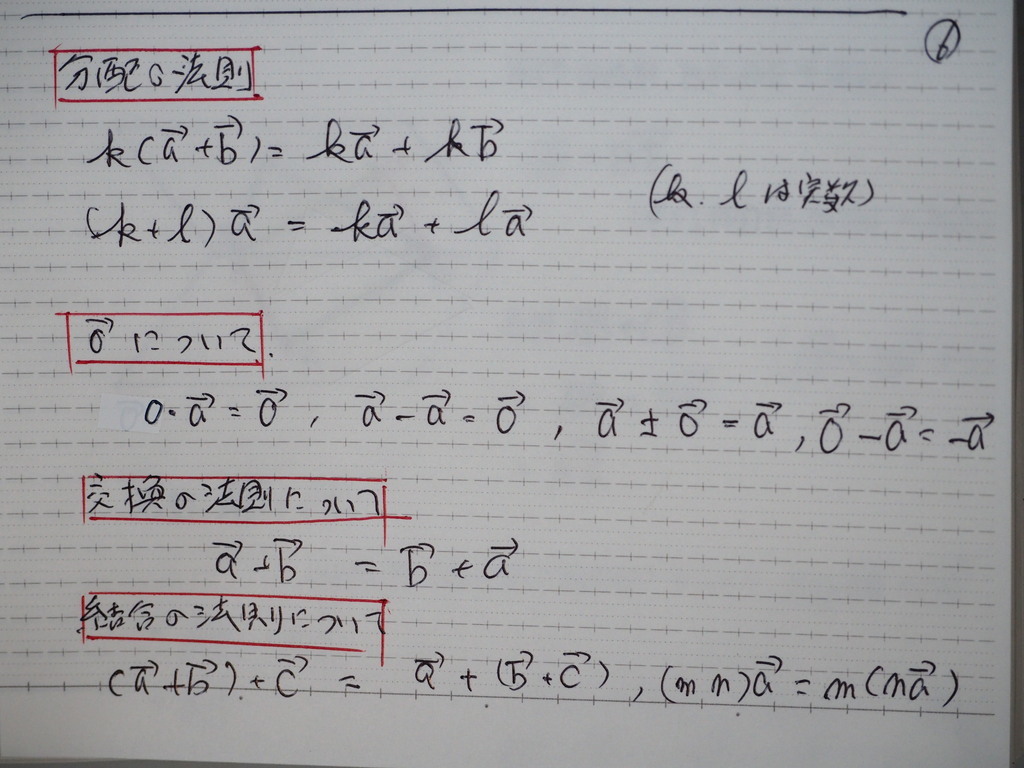 ⑥
分配の法則
k(a⃗+b⃗)= ka⃗ + kb⃗
(k. l は実数)
(k+l)a⃗ = ka⃗ + la⃗
0⃗ について.
0・a⃗ = 0⃗ , a⃗ - a⃗ = 0⃗ , a⃗ ± 0⃗ = a⃗ , 0⃗ - a⃗ = -a⃗
交換の法則について
a⃗ + b⃗ = b⃗ + a⃗
結合の法則について
(a⃗+b⃗)+c⃗ = a⃗ + (b⃗+c⃗) , (mn)a⃗ = m(na⃗)